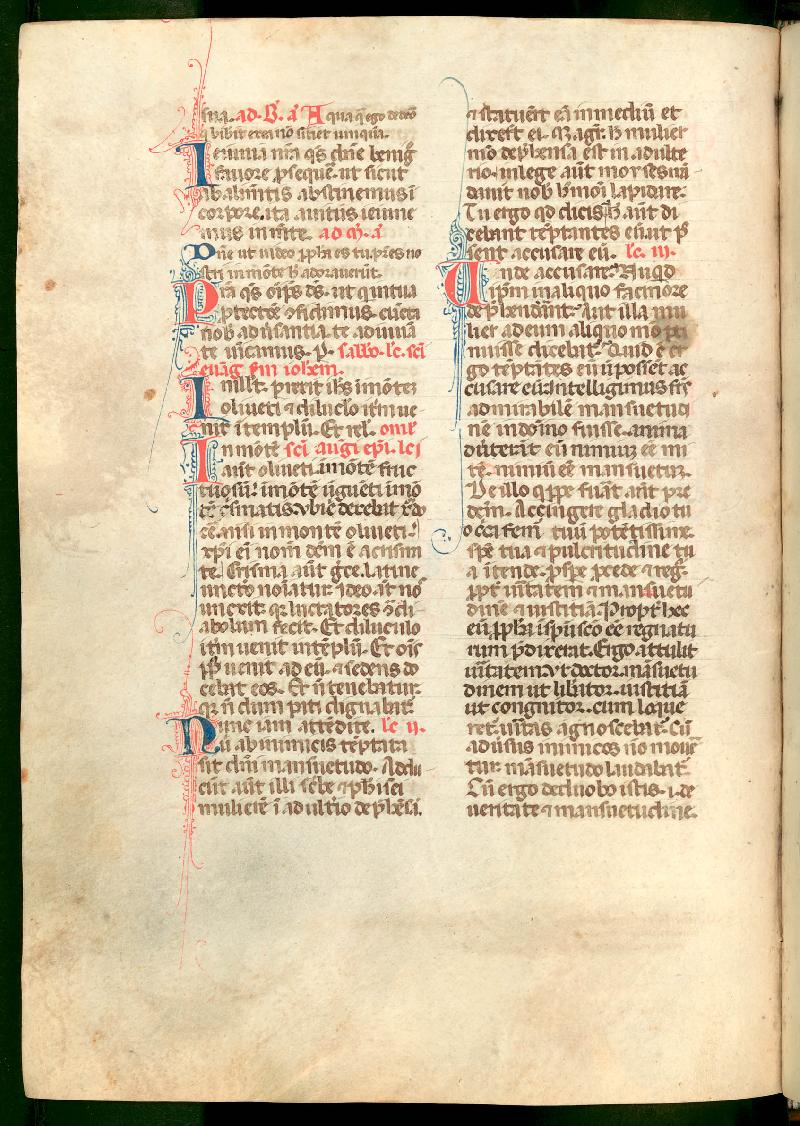 sua. ad. B. a Aqua q̄ ego dedeo
q̄ bibit ex ea nō sitiet umquā.
Ieiunia nr̄a qs dn̄e beniḡ
fauore ꝓsequē. ut sicut
ab alimētis abstinemus ī
corpore. ita a uitiis ieiune
mus in mēte. ad m. a
Dn̄e ut uideo ꝓph̄a es tu. pr̄es no
stri in mōte h̄ adorauerūt.
Pr̄a qs om̄ps ds̄. ut qui tua
ꝓtectōe ɔfidimus. cūcta
nob̄ aduersantia te adiuuā
te uincamus. p. sabbo. lc. sci
euāg. scđm ioh̄em.
In illo t. perrit ih̄s ī mōtez
oliueti ⁊ diluclo itm̄ ue
nit ī templū. Et rel. ome
In mōte sci augi epi. lc j
aut̄ oliueti. ī mōte fruc
tuosū. imōte ūguēti imō
te c̄smatis. vbi ē decebat x̄do
cē. nisi in mon te oliueti.
xp̄i ei nom̄ dēm ē a crism̄
te. Crisma aut̄ ḡce. latine
uncto noīatur. ideo at̄ nō
unexit. qr luctatores ɔ̄ di
abolum fecit. Et diluculo
itm̄ uenit in tēplū. Et oīs
ppl̄s uenit ad eū. ⁊ sedens do
cebat eos. Et n̄ tenebatur.
qr n̄ dum pati dignabat̄
Nunc iam attēdite. lc ij.
ū ab inimicis tēptata
sit dn̄i mansuetudo. Addu
cūt aūt illi sc̄be ⁊ ph̄isei
mulierē ī adult̄io dep̄hēsā.
⁊ statuer̄t eā in mediū et
dixer̄t ei. mr̄ agr̄. h̄ mulier
mō dep̄hensa est in adulte
rio. in lege aūt moyses mā
dauit nob̄ h̄moi lapidare.
Tu ergo qd dicis. h̄ aūt di
cebant tēptantes eū. ut pos
sent accusare eū. lc. iij.
Unde accusare? Nuqd
ip̄m in aliquo facinore
dep̄hendūt? Aut illa mu
lier ad eum aliquo mō per
tinuisse dicebat̄. Quid ē er
go tēptātes eū ut possēt ac
cusare eū. Intelligimus frs̄
admirabilē mansuetudi
nē in dōmino fuisse. anima
duterūt eū nimiuz eē mi
tē. nimiū eē mansuetuz.
De illo qppe fuāt añt pre
dcm̄. Accingere gladio tu
o cca femr̄ tuū potētissime.
spē tua ⁊ pulcritudine tu
a ītende. pspe pcede ⁊ regn̄.
ppt̄ uītatem ⁊ mansuetu
dinē ⁊ iustitiā. Propt̄ hec
eū ꝓph̄a ī sp̄u sco eē regnatu
rum p̄dixerat. Ergo attulit
uītatem vt doctor. māsuetu
dinem ut libātor. iustitiā
ut congnitor. cum loque
ret. uitas agnoscebat̄. Cū
aduersus inimicos nō moue
tur. māsuetudo laudabat̄.
Cū ergo de duobo istis. i. de
ueritate ⁊ mansuetudine.